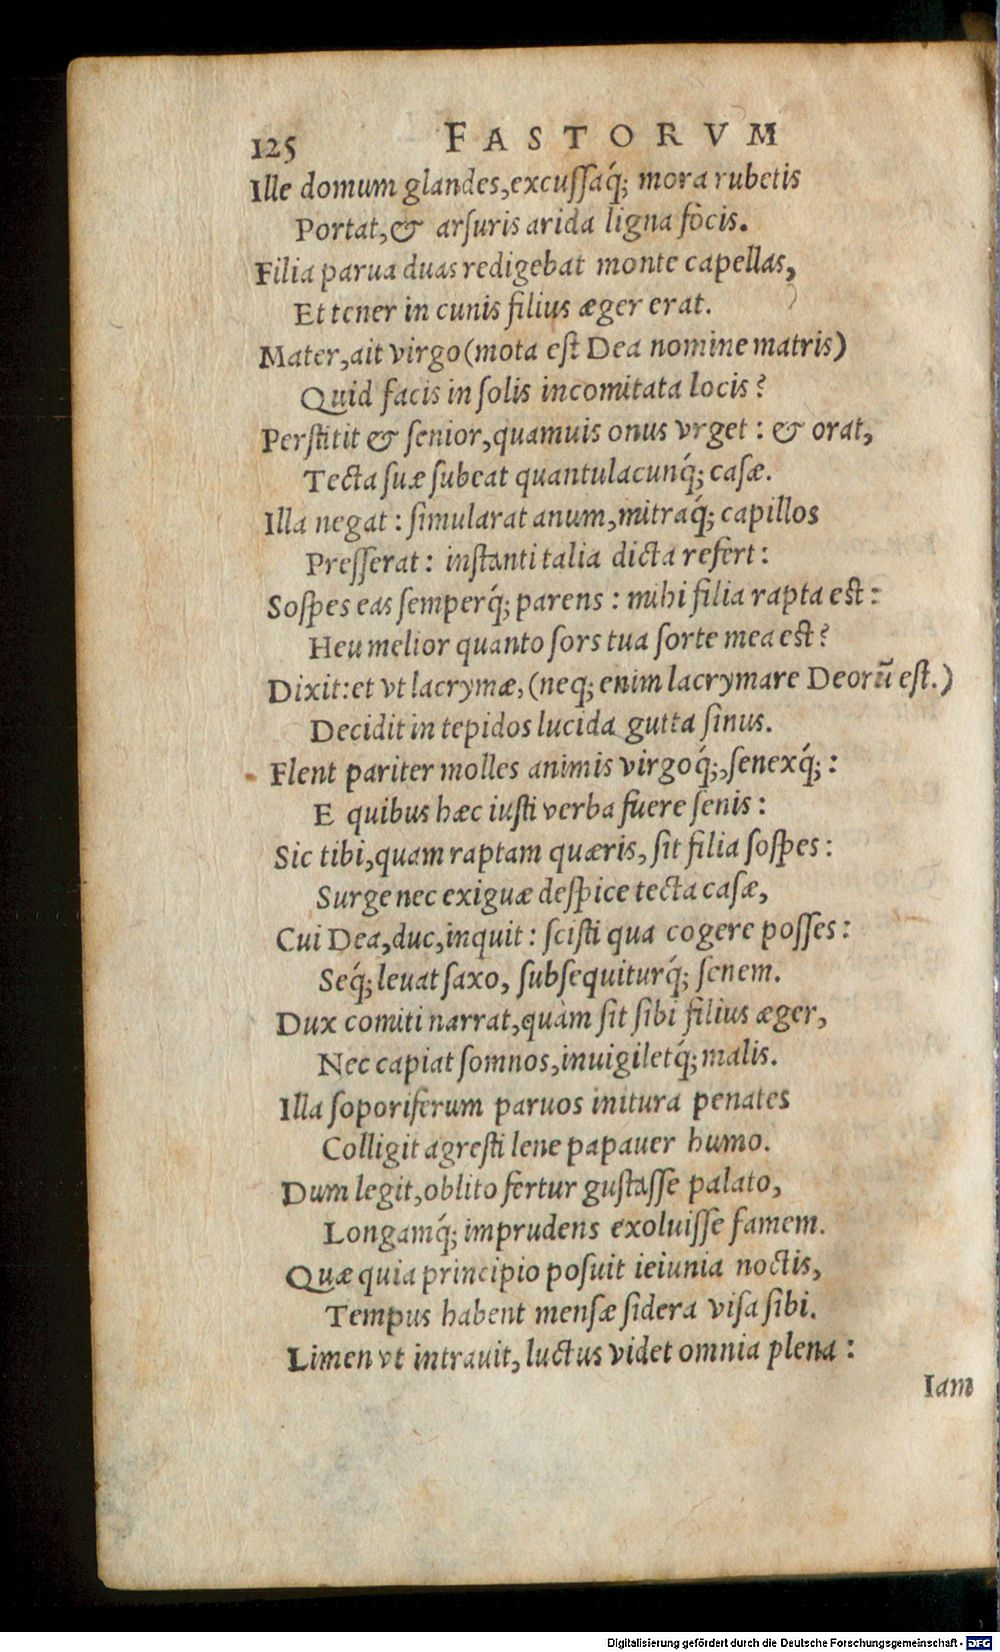 125 FASTORVM
Ille domum glandes, excuſſaq́; mora rubetis
Portat, & arſuris arida ligna fòcis.
Filia parua duas redigebat monte capellas,
Et tener in cunis filius æger erat.
Mater, ait virgo (mota eſt Dea nomine matris)
Quid facis in ſolis incomitata locis?
Perſtitit & ſenior, quamuis onus vrget: & orat,
Tecta ſuæ ſubeat quantulacunq́; caſæ.
Illa negat: ſimularat anum, mitraq́; capillos
Preſſerat: inſtanti talia dicta refert:
Soſpes eas ſemperq́; parens: mihi filia rapta eſt:
Heu melior quanto ſors tua ſorte mea eſt?
Dixit: et vt lacrymæ, (neq; enim lacrymare Deorū eſt.)
Decidit in tepidos lucida gutta ſinus.
Flent pariter molles animis virgoq́;, ſenexq́;:
E quibus hæc iuſti verba fuere ſenis:
Sic tibi, quam raptam quæris, ſit filia ſoſpes:
Surge nec exiguæ deſpice tecta caſæ,
Cui Dea, duc, inquit: ſciſti qua cogere poſſes:
Seq́; leuat ſaxo, ſubſequiturq́; ſenem.
Dux comiti narrat, quàm ſit ſibi filius æger,
Nec capiat ſomnos, inuigiletq́; malis.
Illa ſoporiferum paruos initura penates
Colligit agreſti lene papauer humo.
Dum legit, oblito fertur guſtaſſe palato,
Longamq́; imprudens exoluiſſe famem.
Quæ quia principio poſuit ieiunia noctis,
Tempus habent menſæ ſidera viſa ſibi.
Limen vt intrauit, luctus videt omnia plena:
Iam
Digitalisierung gefördert durch die Deutsche Forschungsgemeinschaft - DFG